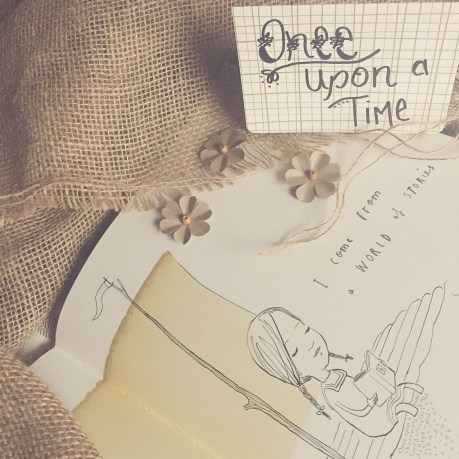 Once
upon a
TIME
I come from
a WORLD of STORIES